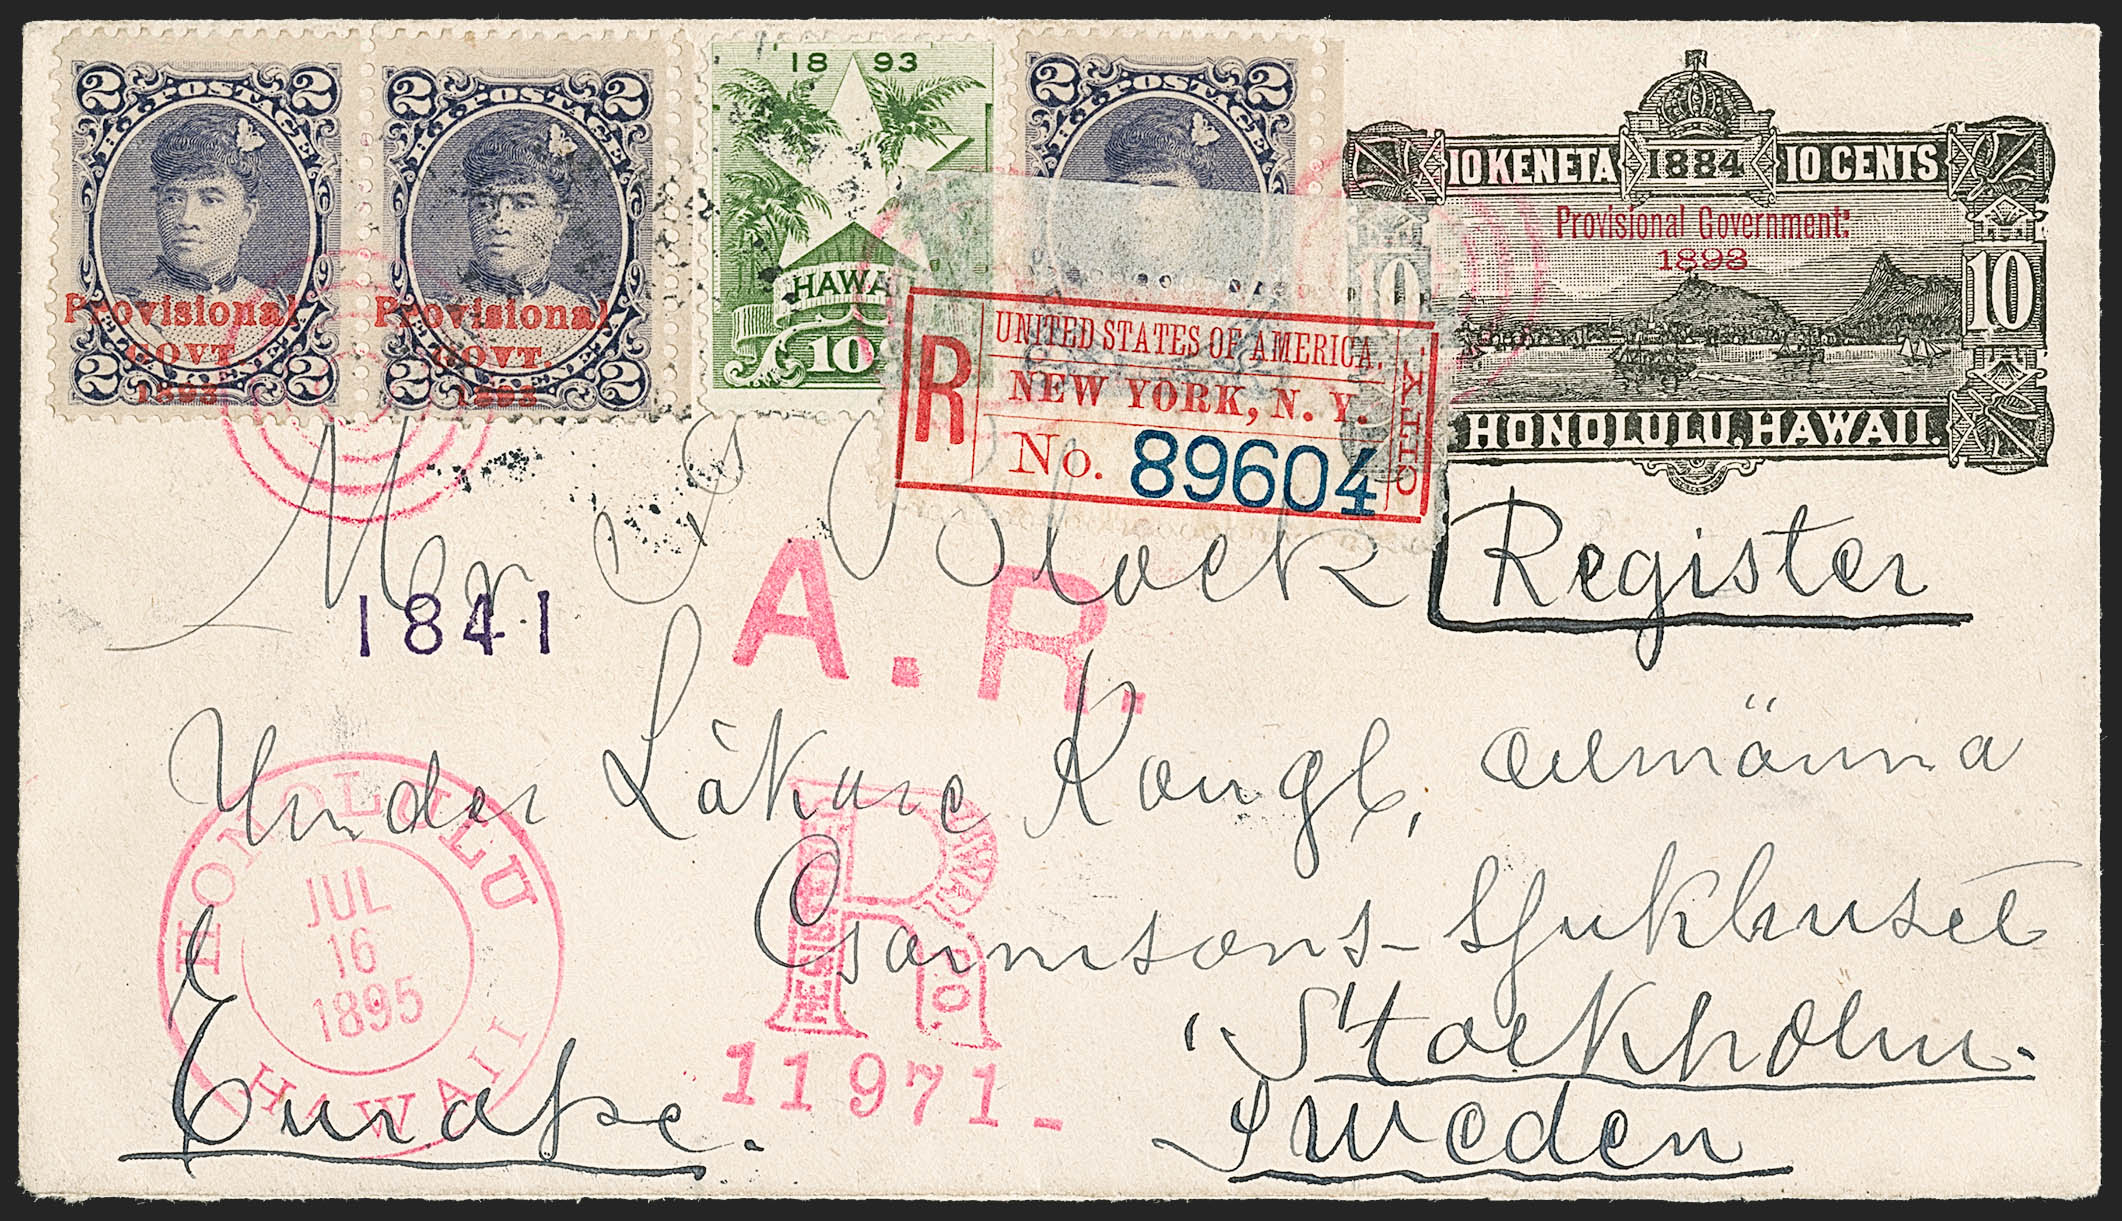 2 POSTAGE 2
Provisional
GOVT.
1893
2 2
2 POSTAGE 2
Provisional
GOVT.
1893
2 2
1893
HAWA
10
2 POSTAGE 2
10 KENETA 1884 10 CENTS
Provisional Government:
1893
10 10
HONOLULU, HAWAII.
R
UNITED STATES OF AMERICA.
NEW YORK, N. Y.
No. 89604
CITY
Register
Block
1841
A.R.
Under Läkare Kongl. Allmänna
Garnisons-Sjukhuset
Stockholm.
Sweden
Europe.
HONOLULU
JUL
16
1895
HAWAII
R
REGISTERED
11971-